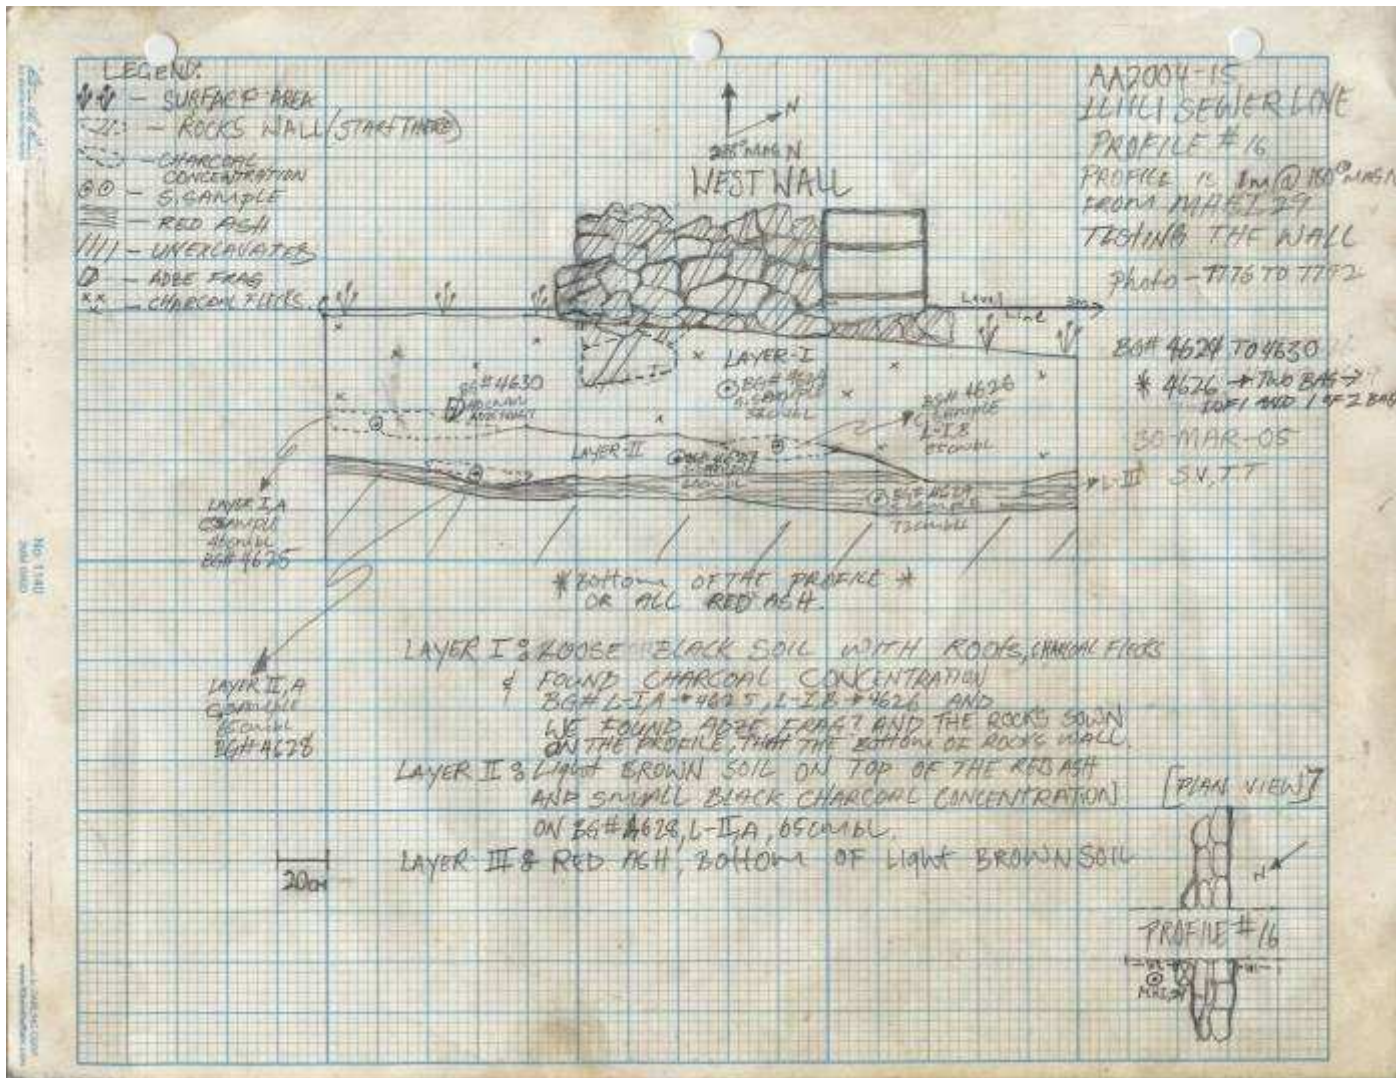 LEGEND:
- SURFACE AREA
- ROCKS WALL (START THERE)
- CHARCOAL
CONCENTRATION
- S. SAMPLE
- RED ASH
- UNEXCAVATED
- ADZE FRAG
- CHARCOAL FLECKS
N
MAG N
WEST WALL
AA2004-15
ILIILI SEWER LINE
PROFILE #16
PROFILE IS 1m @ 160° MAGN
FROM
TESTING THE WALL
Photo - 7776 TO 7792
BG# 4624 TO 4630
* 4626 → TWO BAG →
1 OF 1 AND 1 OF 2 BAG
30-MAR-05
S.V, T.T
Level
Line
3m
LAYER-I
S. SAMPLE
BG# 4630
BG# 4626
C SAMPLE
L-I.B
65cmbl
LAYER-II
L-III
BG# 4629
72cmbl
LAYER I, A
C SAMPLE
BG# 4625
LAYER II, A
C SAMPLE
65cmbl
BG# 4628
* Bottom OF THE PROFILE *
OR ALL RED ASH.
LAYER I : LOOSE BLACK SOIL WITH ROOTS, CHARCOAL FLECKS
& FOUND CHARCOAL CONCENTRATION
BG# L-I,A-#4625, L-I.B #4626 AND
WE FOUND ADZE FRAG? AND THE ROCKS SOWN
ON THE PROFILE, THAT THE BOTTOM OF ROCKS WALL.
LAYER II : Light BROWN SOIL ON TOP OF THE RED ASH
AND SMALL BLACK CHARCOAL CONCENTRATION
ON BG# 4628, L-II,A, 65cmbl.
LAYER III : RED ASH, Bottom OF Light BROWN SOIL
20cm
[PLAN VIEW]
N
PROFILE #16
No. 1140